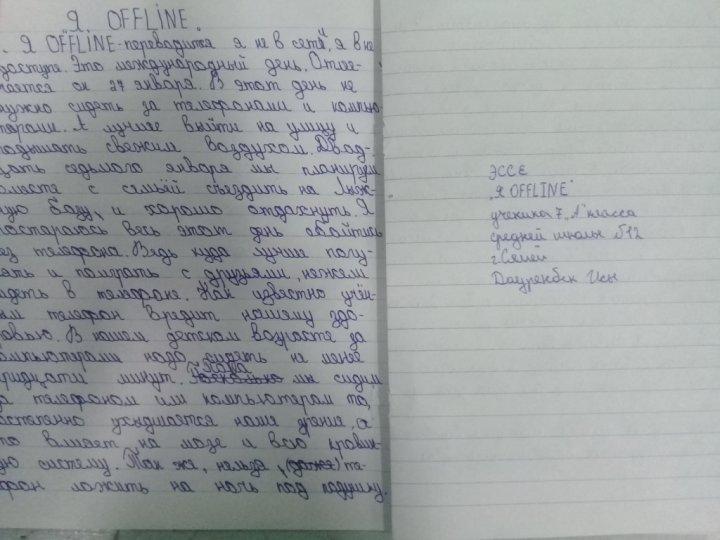 Я OFFLINE.
. Я OFFLINE-переводится я не в сети, я в не
доступе. Это международный день. Отме-
чается он 27 января. В этот день не
нужно сидеть за телефонами и компью-
терами. А лучше выйти на улицу и
подышать свежим воздухом. Двад-
цать седьмого января мы планируем
вместе с семьёй съездить на лыж-
ную базу, и хорошо отдохнуть. Я
постараюсь весь этот день обойтись
без телефона. Ведь куда лучше погу-
лять и поиграть с друзьями, нежели
сидеть в телефоне. Как известно учён-
ым телефон вредит нашему здо-
ровью. В нашем детском возрасте за
компьютерами надо сидеть не менее
тридцати минут. Пока мы сидим
за телефоном или компьютером то,
постепенно ухудшается наше зрение, а
это влияет на мозг и всю кровян-
ую систему. Так же, нельзя (даже) те-
фон ложить на ночь под подушку.
ЭССЕ
"Я OFFLINE"
ученика 7 "А" класса
средней школы №12
г.Семей
Дауренбек Исы